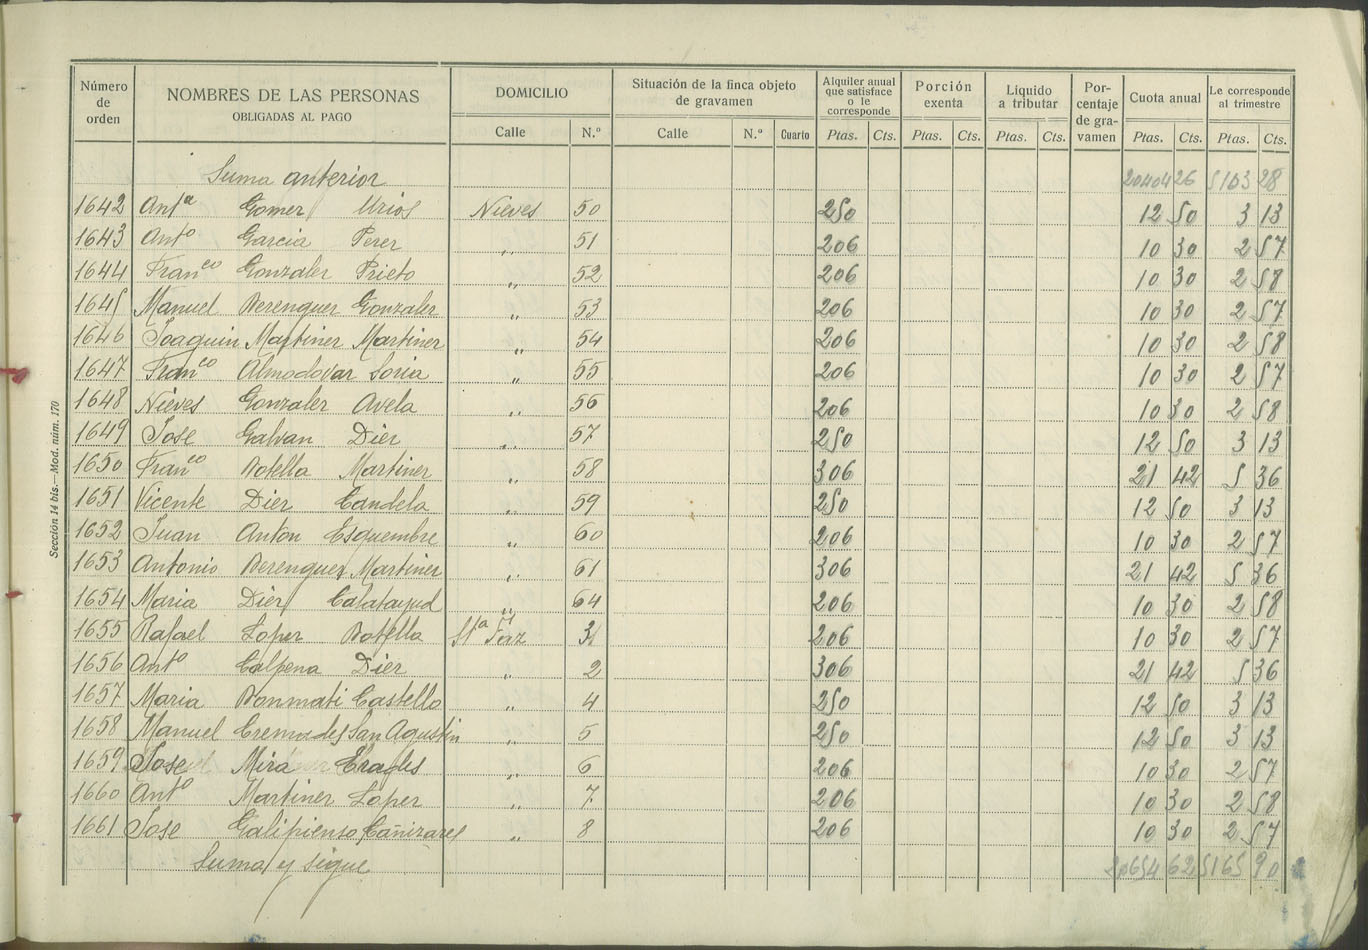 Número de orden | NOMBRES DE LAS PERSONAS OBLIGADAS AL PAGO | DOMICILIO | Situación de la finca objeto de gravamen | Alquiler anual que satisface o le corresponde | Porción exenta | Líquido a tributar | Por-centaje de gra-vamen | Cuota anual | Le corresponde al trimestre
Calle | N.º | Calle | N.º | Cuarto | Ptas. | Cts. | Ptas. | Cts. | Ptas. | Cts. | Ptas. | Cts. | Ptas. | Cts.
Suma anterior 20404 26 5103 28
1642 Antª Gomez Urios Nieves 50 250 12 50 3 13
1643 Antº Garcia Perez " 51 206 10 30 2 57
1644 Franco Gonzalez Prieto " 52 206 10 30 2 58
1645 Manuel Berenguer Gonzalez " 53 206 10 30 2 57
1646 Joaquin Martinez Martinez " 54 206 10 30 2 58
1647 Franco Almodovar Soria " 55 206 10 30 2 57
1648 Nieves Gonzalez Avela " 56 206 10 30 2 58
1649 Jose Galvan Diez " 57 250 12 50 3 13
1650 Franco Botella Martinez " 58 306 21 42 5 36
1651 Vicente Diez Candela " 59 250 12 50 3 13
1652 Juan Anton Esquembre " 60 206 10 30 2 57
1653 Antonio Berenguer Martinez " 61 306 21 42 5 36
1654 Maria Diez Calatayud " 64 206 10 30 2 58
1655 Rafael Lopez Botella Stª Faz 31 206 10 30 2 57
1656 Antº Calpena Diez " 2 306 21 42 5 36
1657 Maria Bonmati Castello " 4 250 12 50 3 13
1658 Manuel Cremades San Agustin " 5 250 12 50 3 13
1659 Jose Mira " 6 206 10 30 2 57
1660 Antº Martinez Lopez " 7 206 10 30 2 58
1661 Jose Galipienso Cañizares " 8 206 10 30 2 57
Suma y sigue 20654 62 5165 90
Sección 14 bis.—Mod. núm. 170